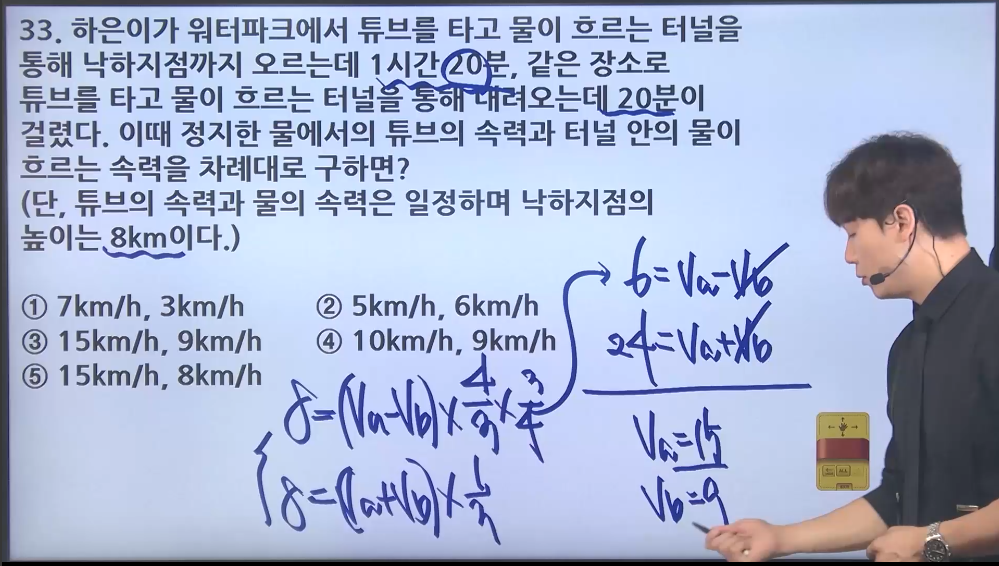 33. 하은이가 워터파크에서 튜브를 타고 물이 흐르는 터널을
통해 낙하지점까지 오르는데 1시간 20분, 같은 장소로
튜브를 타고 물이 흐르는 터널을 통해 내려오는데 20분이
걸렸다. 이때 정지한 물에서의 튜브의 속력과 터널 안의 물이
흐르는 속력을 차례대로 구하면?
(단, 튜브의 속력과 물의 속력은 일정하며 낙하지점의
높이는 8km이다.)
① 7km/h, 3km/h ② 5km/h, 6km/h
③ 15km/h, 9km/h ④ 10km/h, 9km/h
⑤ 15km/h, 8km/h
8=(Va-Vb)×4/3×3/4
8=(Va+Vb)×1/3
6=Va-Vb
24=Va+Vb
Va=15
Vb=9